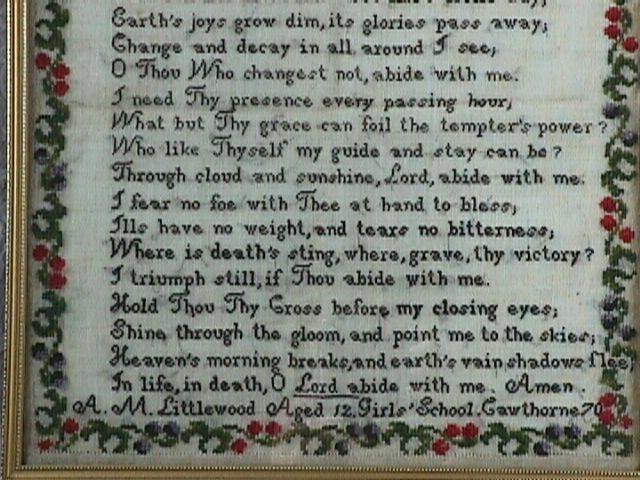 Earth's joys grow dim, its glories pass away;
Change and decay in all around I see;
O Thou Who changest not, abide with me.
I need Thy presence every passing hour;
What but Thy grace can foil the tempter's power?
Who like Thyself my guide and stay can be?
Through cloud and sunshine, Lord, abide with me.
I fear no foe with Thee at hand to bless;
Ills have no weight, and tears no bitterness;
Where is death's sting, where, grave, thy victory?
I triumph still, if Thou abide with me.
Hold Thou Thy Cross before my closing eyes;
Shine through the gloom, and point me to the skies;
Heaven's morning breaks, and earth's vain shadows flee;
In life, in death, O Lord abide with me. Amen.
A. M. Littlewood Aged 12. Girls' School. Cawthorne 70